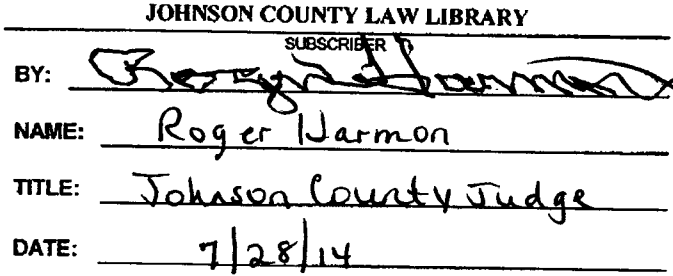 JOHNSON COUNTY LAW LIBRARY
SUBSCRIBER
BY: Roger Harmon
NAME: Roger Harmon
TITLE: Johnson County Judge
DATE: 7/28/14